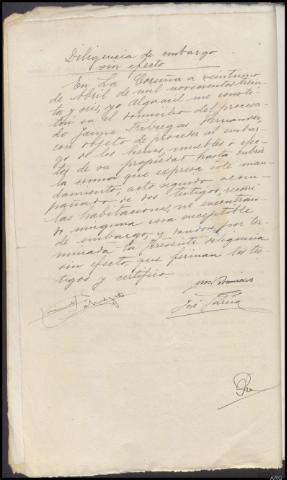 Diligencia de embargo
sin efecto
En La Coruña a veintiuno
de Abril de mil novecientos trein-
ta y seis, yo Alguacil me consti-
tui en el domicilio del procesa-
do Jaime Fabregas Hernandez
con objeto de proceder al embar-
go de los bienes, muebles o efec-
tos de su propiedad hasta cubrir
la suma que expresa este man-
damiento, acto seguido acom-
pañado de dos testigos, recorri
las habitaciones, no encontran-
do ninguna cosa susceptible
de embargo, y dando por ter-
minada la presente diligencia
sin efecto, que firman los tes-
tigos y certifico
José García